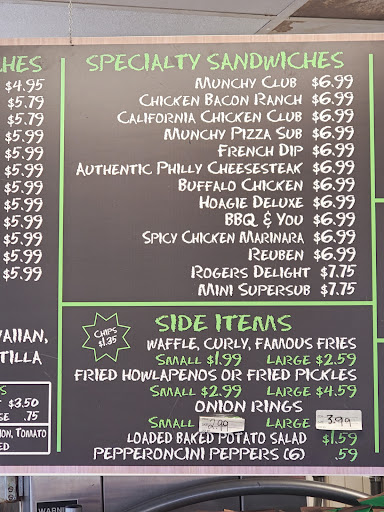 HES
$4.95
$5.79
$5.79
$5.99
$5.99
$5.99
$5.99
$5.99
$5.99
$5.99
$5.99
AIIAN,
TILLA
S
$3.50
SE .75
ION, TOMATO
ED
SPECIALTY SANDWICHES
MUNCHY CLUB $6.99
CHICKEN BACON RANCH $6.99
CALIFORNIA CHICKEN CLUB $6.99
MUNCHY PIZZA SUB $6.99
FRENCH DIP $6.99
AUTHENTIC PHILLY CHEESESTEAK $6.99
BUFFALO CHICKEN $6.99
HOAGIE DELUXE $6.99
BBQ & YOU $6.99
SPICY CHICKEN MARINARA $6.99
REUBEN $6.99
ROGERS DELIGHT $7.75
MINI SUPERSUB $7.75
CHIPS
$1.35
SIDE ITEMS
WAFFLE, CURLY, FAMOUS FRIES
SMALL $1.99 LARGE $2.59
FRIED HOWLAPENOS OR FRIED PICKLES
SMALL $2.99 LARGE $4.59
ONION RINGS
SMALL 2.99 LARGE 3.99
LOADED BAKED POTATO SALAD $1.59
PEPPERONCINI PEPPERS (6) .59
WARNI